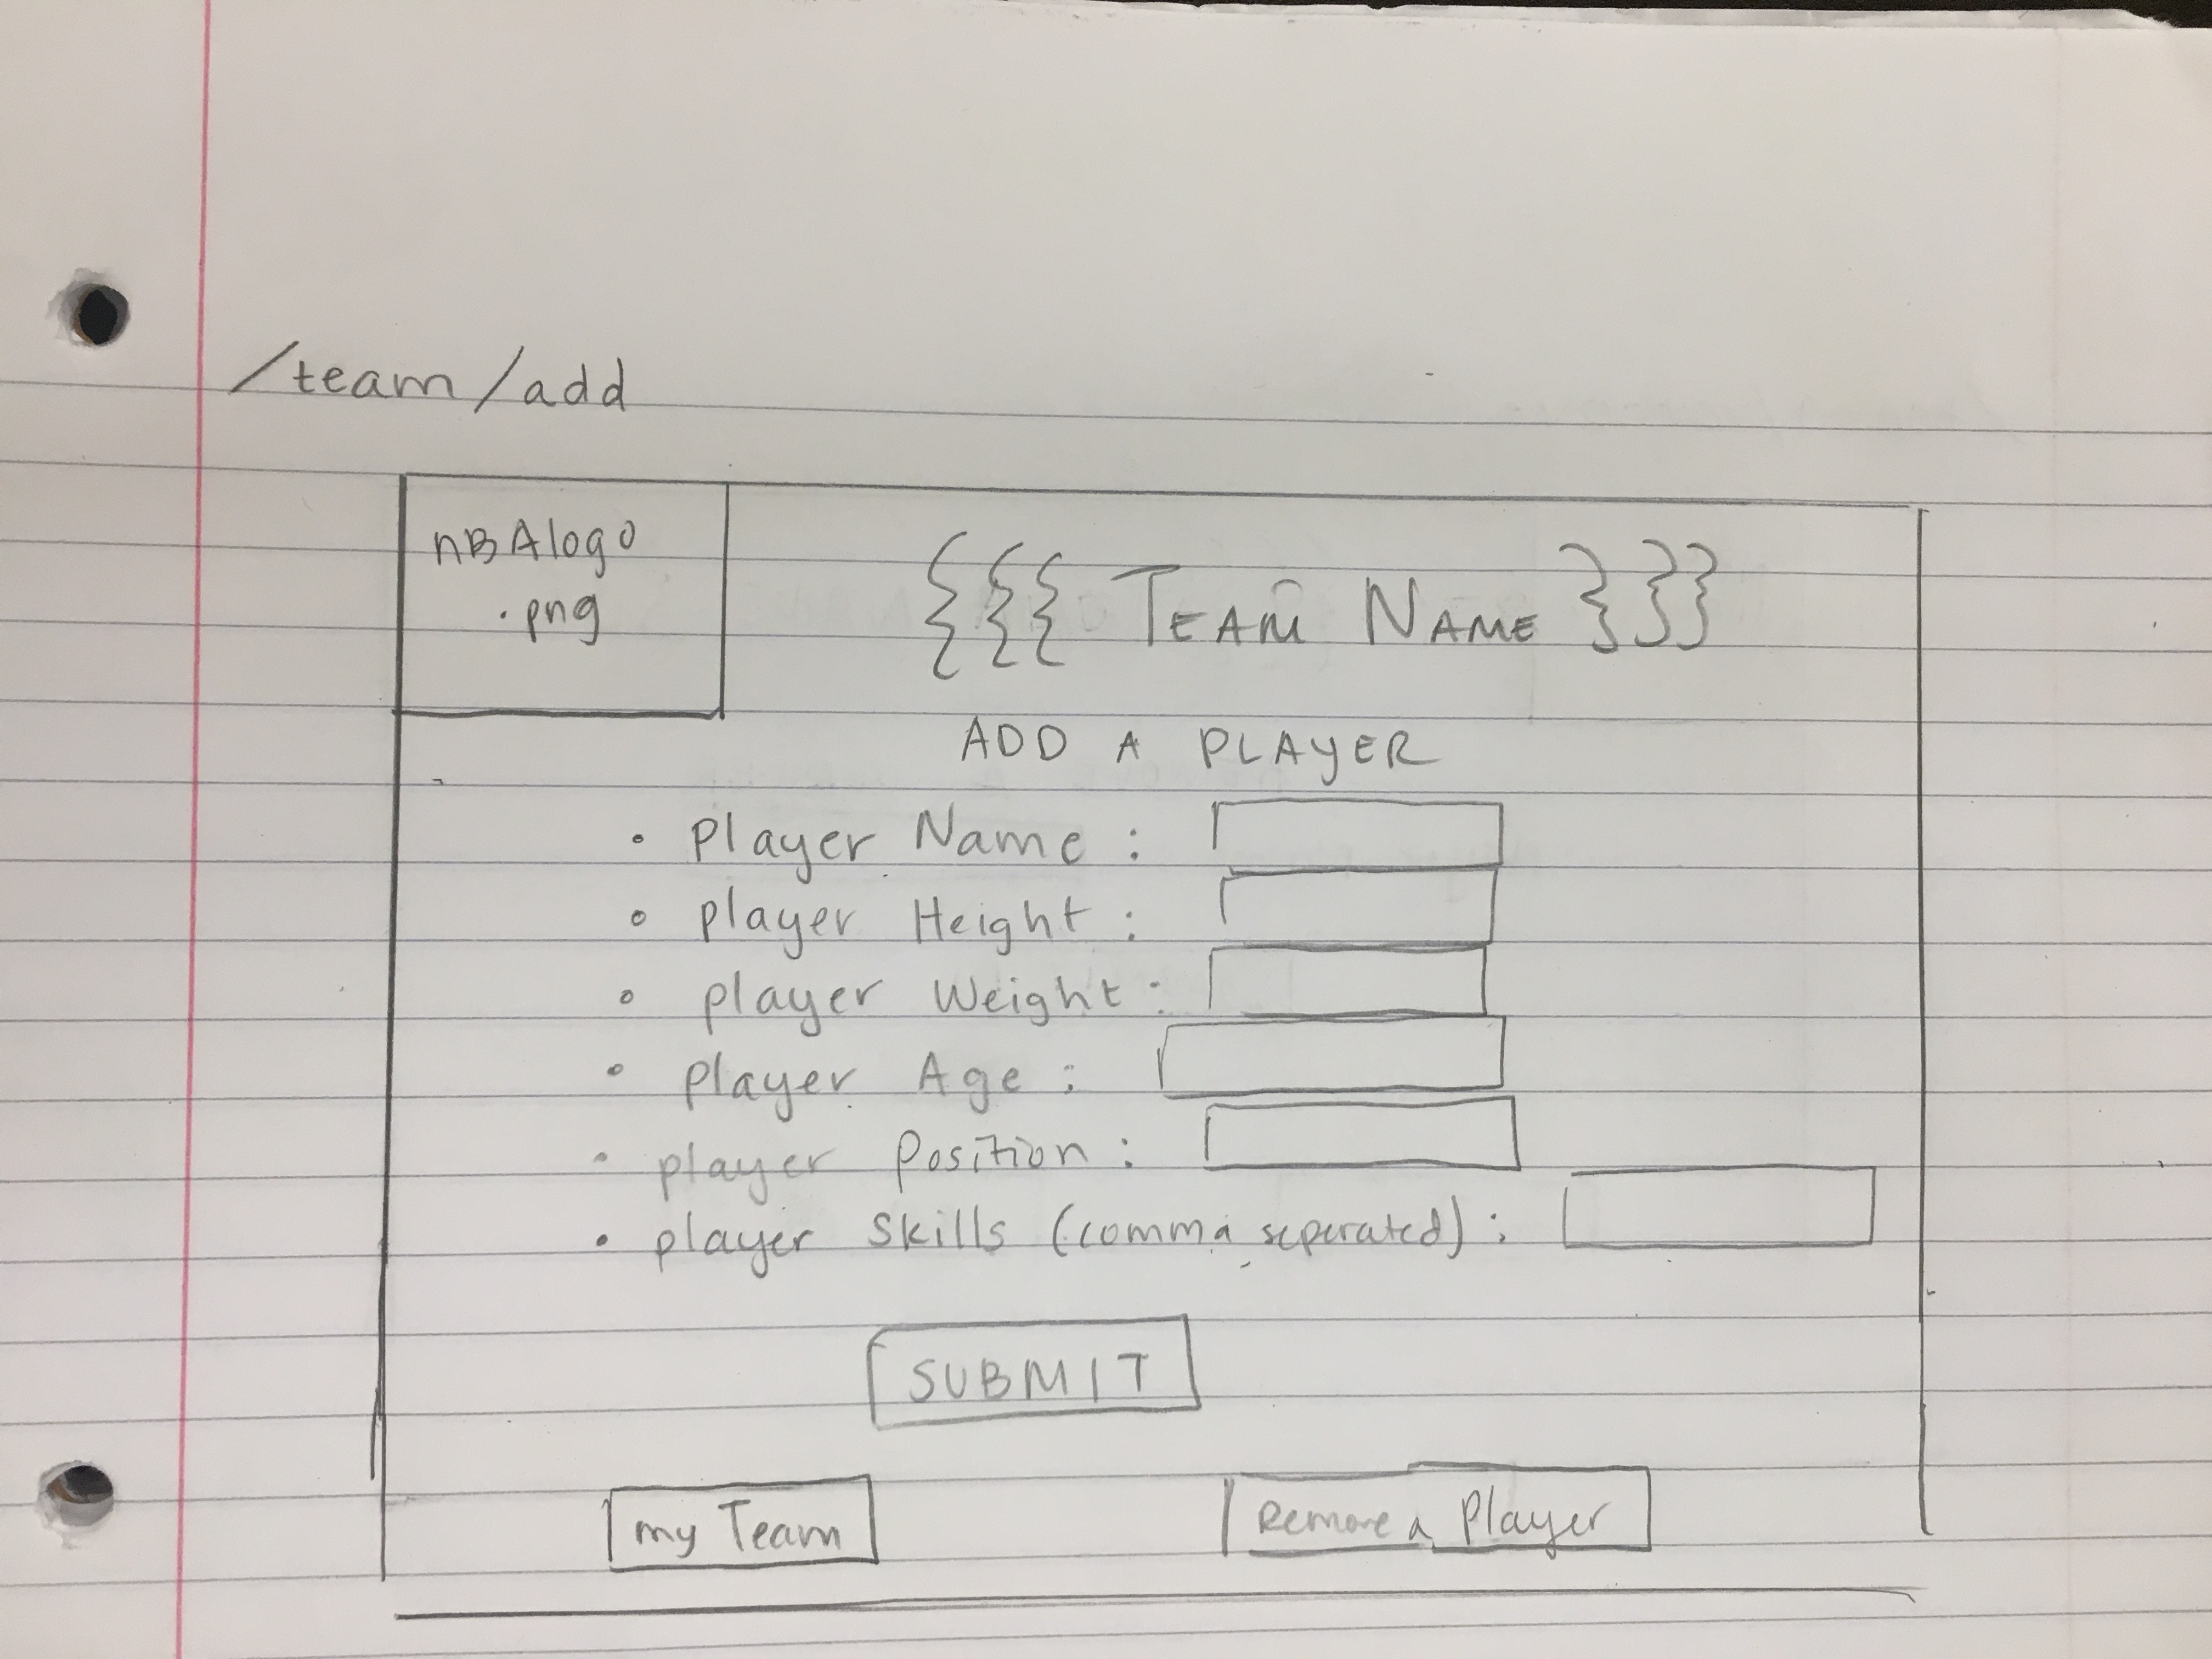 /team/add
nBAlogo
.png
{{{ TEAM NAME }}}
ADD A PLAYER
• Player Name :
• player Height :
• player Weight :
• player Age :
• player Position :
• player Skills (comma seperated) :
SUBMIT
my Team
Remove a Player